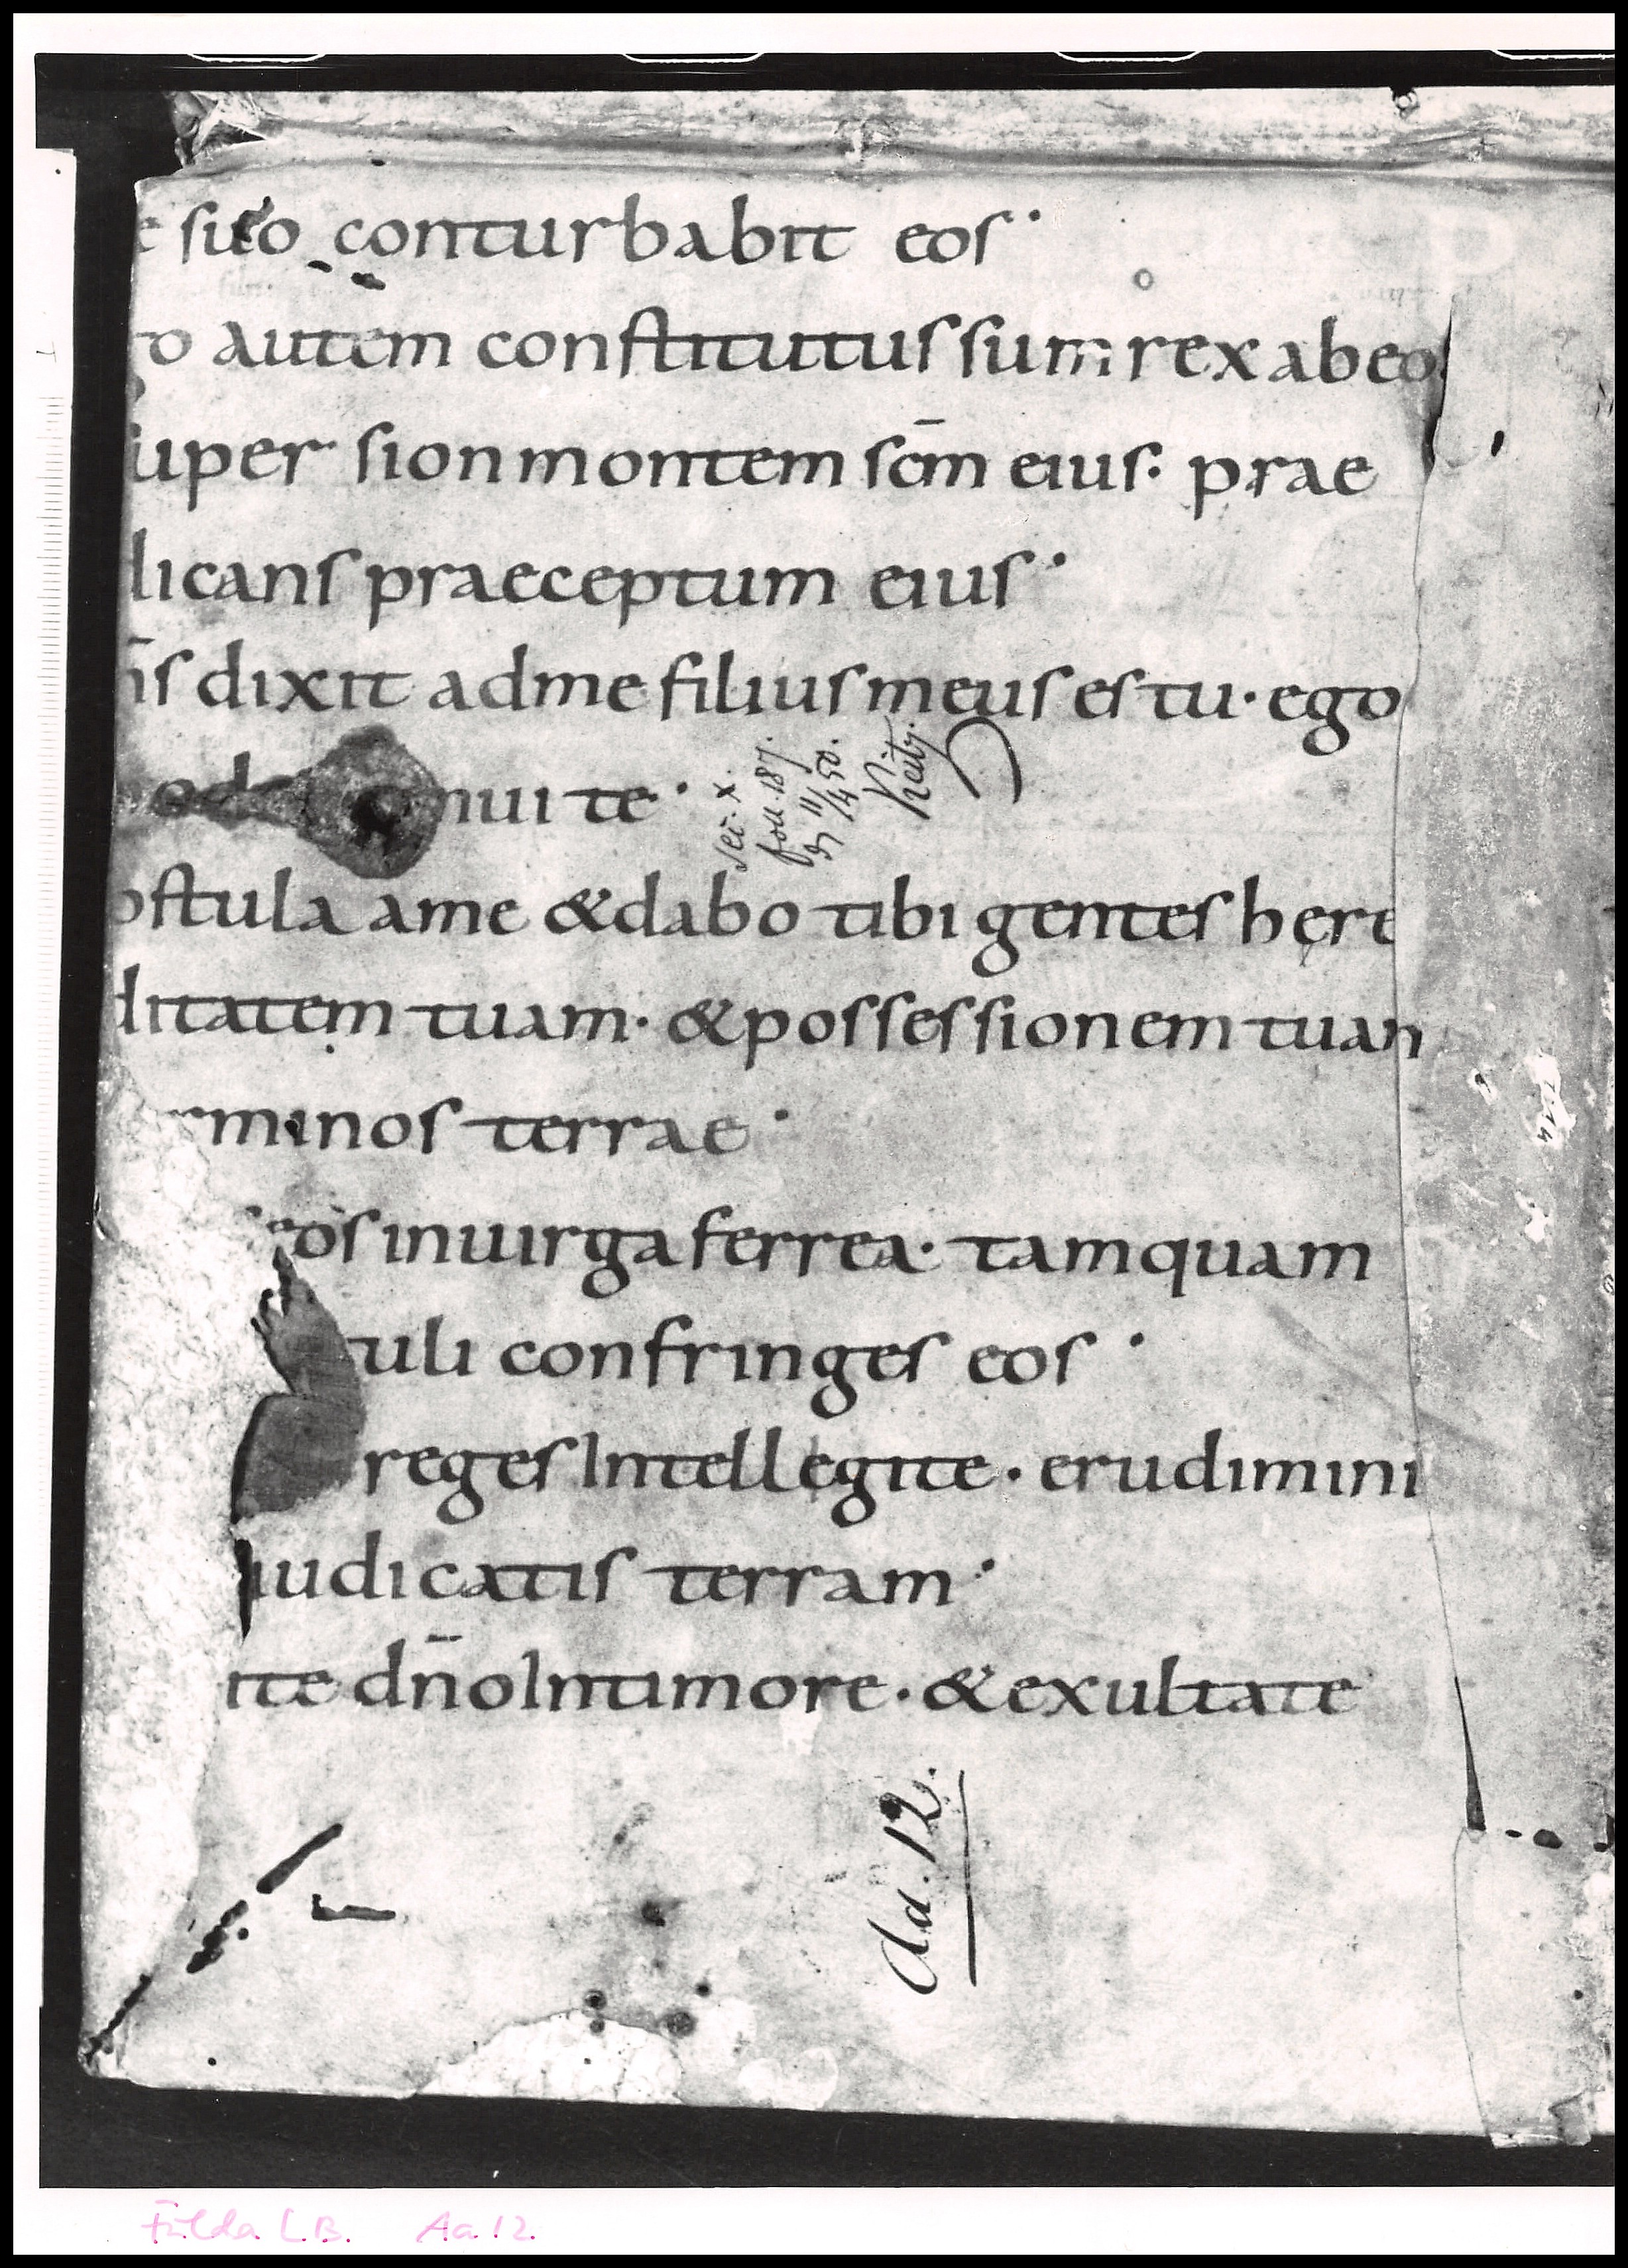 e suo conturbabit eos·
go autem constitutus sum rex ab eo
super sion montem scm̄ eius· prae
licans praeceptum eius·
n̄s dixit ad me filius meus es tu· ego
nui te·
ostula a me & dabo tibi gentes here
ditatem tuam· & possessionem tuam
rminos terrae·
eos in uirga ferrea· tamquam
uli confringes eos·
reges Intellegite· erudimini
iudicatis terram·
ite dn̄o In timore· & exultate
sec. X.
foll. 187.
Aa. 12.
Fulda L.B. Aa 12